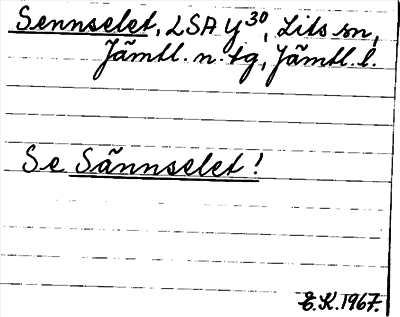 Sennselet, LSA Y³⁰, Lits sn,
Jämtl. n. tg, Jämtl. l.
Se Sännselet!
E.K. 1967.